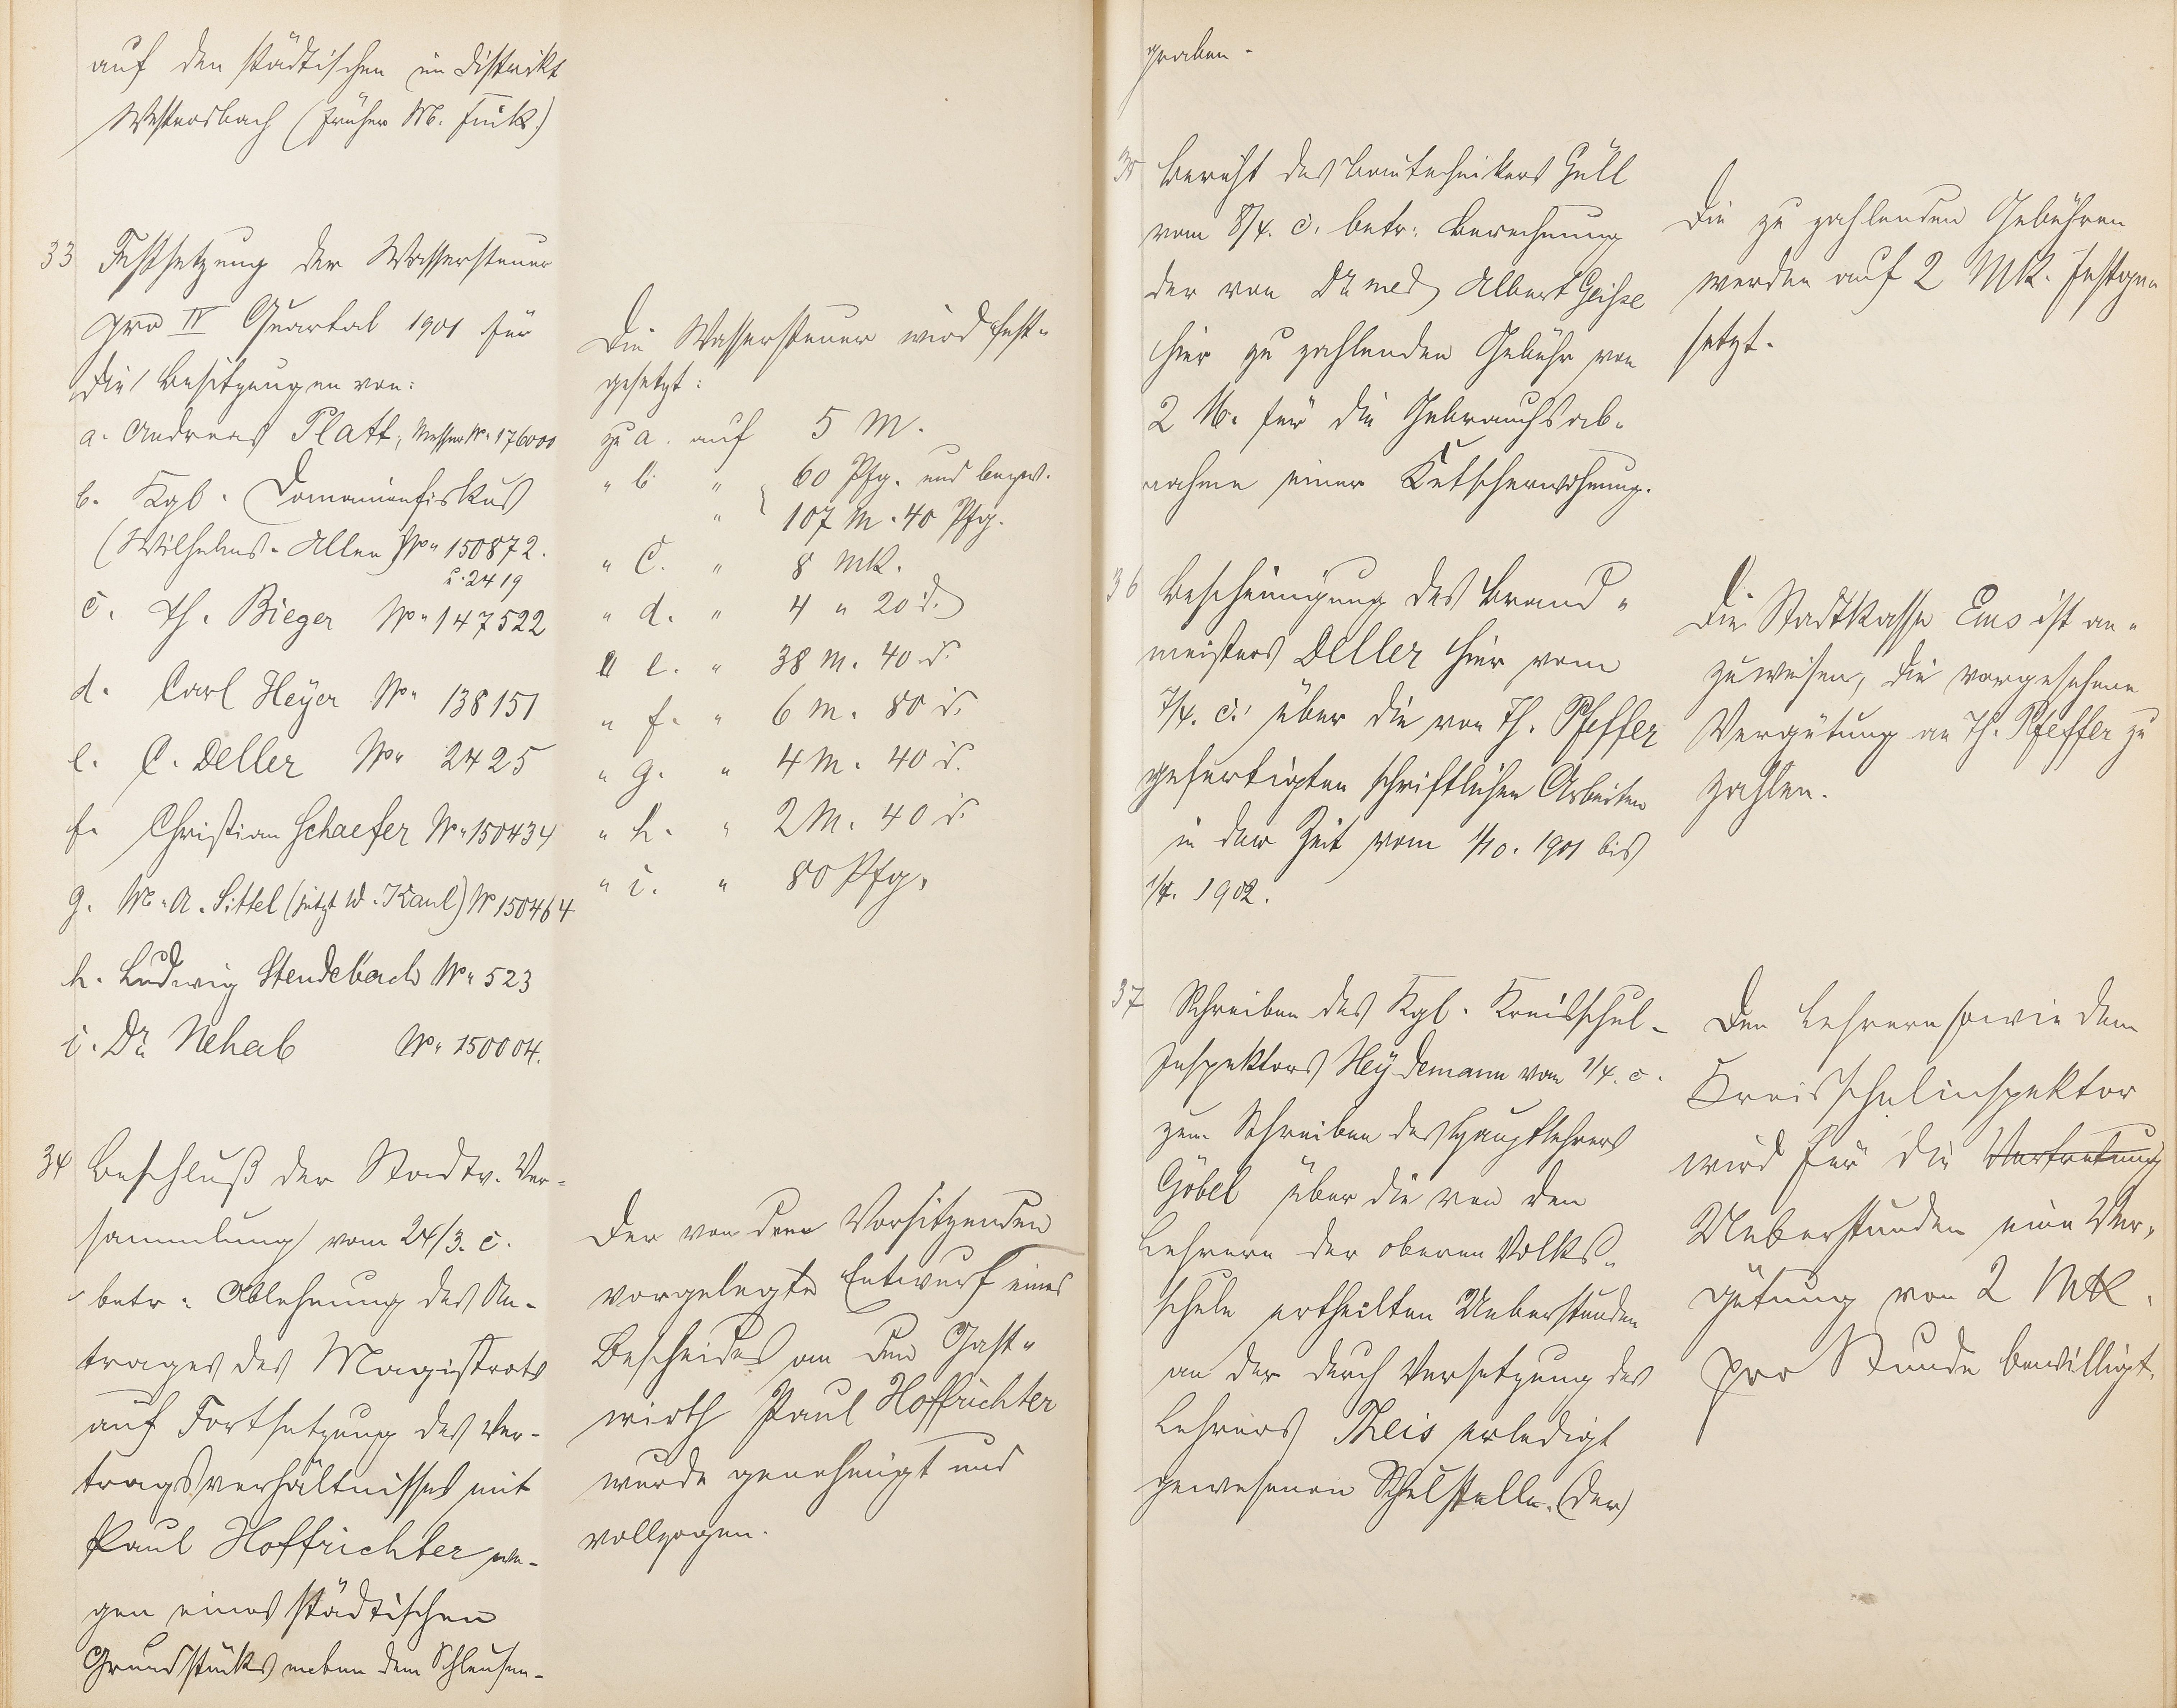 auf den städtischen im Distrikt
Wystersbach (früher M. Fink.)
33 Festsetzung der Wassersteuer
pro IV Quartal 1901 für
die Besitzungen von:
a. Andreas Platt, Messer No. 176000
b. Kgl. Domänenfiskus
(Wilhelms-Allee) No. 150872.
u. 2419
c. Th. Bieger No. 147522
d. Carl Heyer No. 138151
e. C. Deller No. 2425
f. Christian Schaefer No. 150434
g. M. A. Sittel (jetzt W. Kaul) No 150464
h. Ludwig Stendebach No. 523
i. Dr. Nehab No. 150004.
Die Wassersteuer wird fest-
gesetzt:
zu a. auf 5 M.
" b. " 60 Pfg. und bezw.
" 107 M. 40 Pfg.
" c. " 8 Mk.
" d. " 4 " 20 d.
" e. " 38 M. 40 d.
" f. " 6 M. 80 d.
" g. " 4 M. 40 d.
" h. " 2 M. 40 d.
" i. " 80 Pfg.
34 Beschluß der Stadtv. Ver-
sammlung vom 24/3. c.
betr. Ablehnung des An-
trages des Magistrats
auf Fortsetzung des Ver-
tragsverhältnisses mit
Paul Hoffrichter we-
gen eines städtischen
Grundstücks neben dem Schleusen-
Der von dem Vorsitzenden
vorgelegte Entwurf eines
Bescheides an den Gast-
wirth Paul Hoffrichter
wurde genehmigt und
vollzogen.
graben.
35 Bericht des Bautechnikers Güll
vom 8/4. c. betr. Berechnung
der von Dr. med. Albert Geisse
hier zu zahlenden Gebühr von
2 M. für die Gebrauchsab-
nahme einer Kutscherwohnung.
Die zu zahlenden Gebühren
werden auf 2 Mk. festge-
setzt.
36 Bescheinigung des Brand-
meisters Deller hier vom
7/4. c. über die von Th. Pfeffer
gefertigten schriftlichen Arbeiten
in der Zeit vom 1/10. 1901 bis
1/4. 1902.
Die Stadtkasse Ems ist an-
zuweisen, die vorgesehene
Vergütung an Th. Pfeffer zu
zahlen.
37 Schreiben des Kgl. Kreisschul-
Inspektors Heydemann vom 1/4. c.
zum Schreiben des Hauptlehrers
Göbel über die von den
Lehrern der oberen Volks-
schule ertheilten Ueberstunden
an der durch Versetzung des
Lehrers Theis erledigt
gewesenen Schulstelle. (der)
Den Lehrern sowie dem
Kreisschulinspektor
wird für die Vertretung
Ueberstunden eine Ver-
gütung von 2 Mk.
pro Stunde bewilligt.